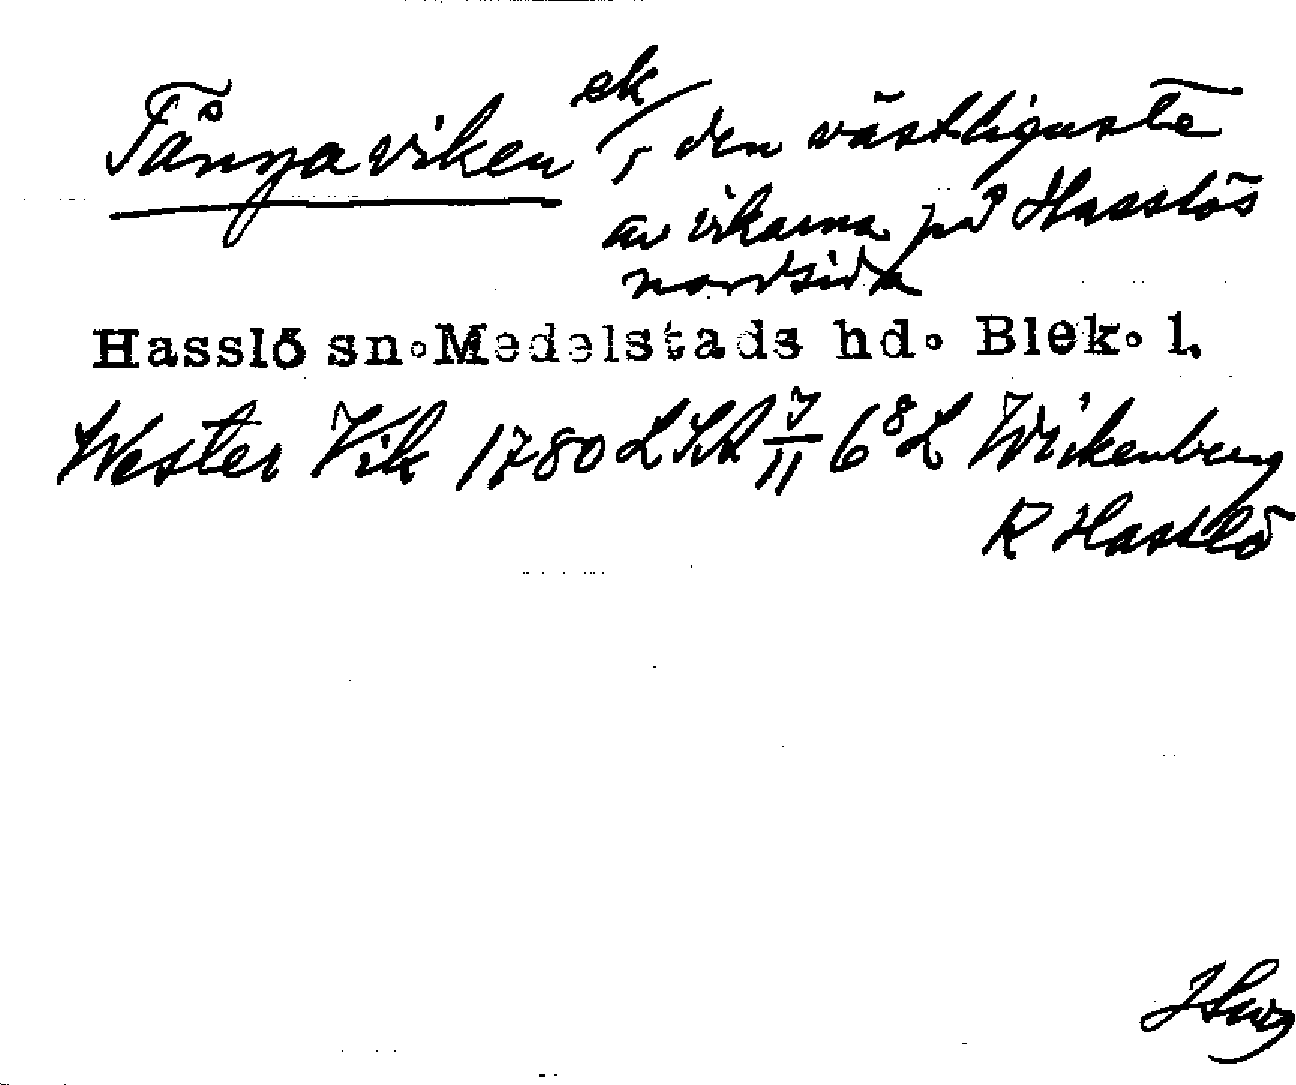 Tångaviken ek/, den västligaste
av vikarna på Hasslös
nordsida
Hasslö sn. Medelstads hd. Blek. l.
Wester Vik 1780 LSA 7/11 6⁸ L Wickenberg
R Hasslö